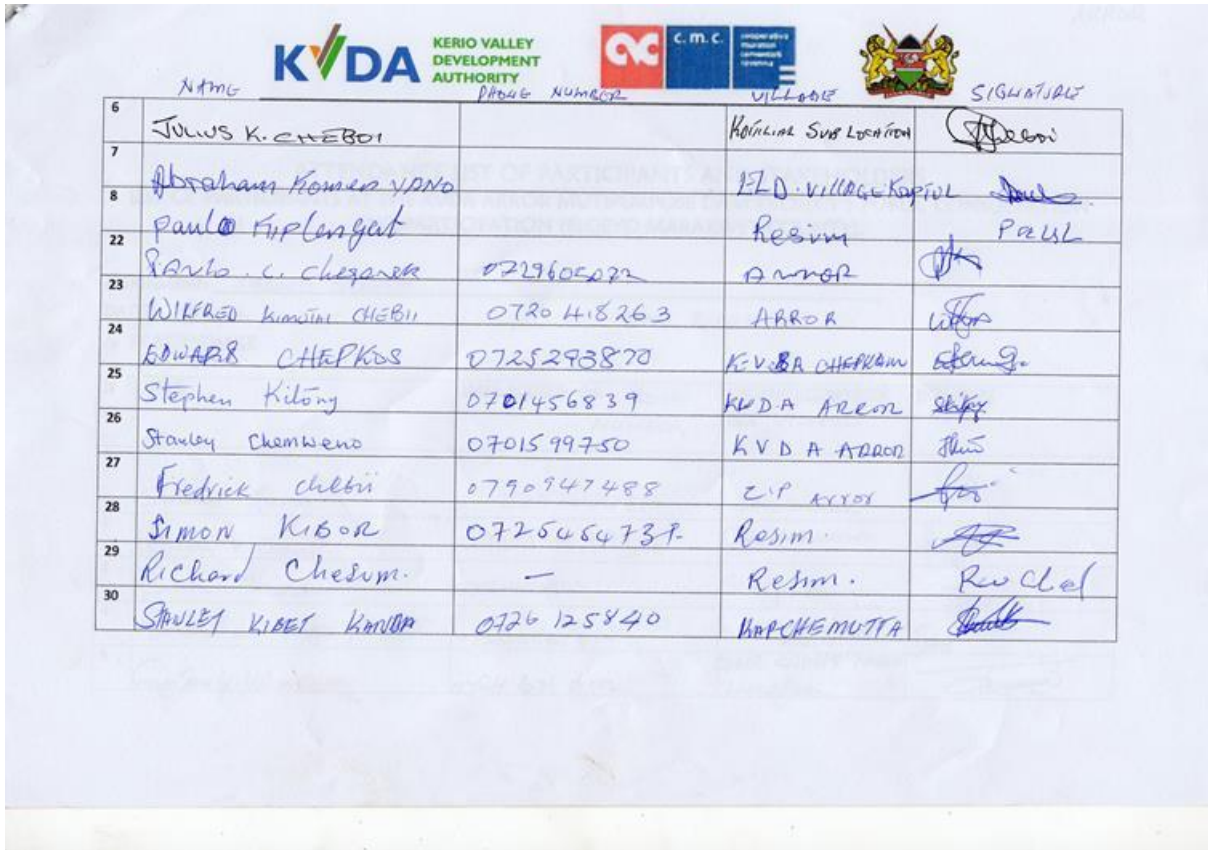 KVDA KERIO VALLEY DEVELOPMENT AUTHORITY c.m.c.
NAME PHONE NUMBER VILLAGE SIGNATURE
6 JULIUS K. CHEBOI SUB LOCATION
7 Abraham Komen YANO ELD. VILLAGE
8 paulo Kiplengat Resim Paul
22 Paulo. C. ARROR
23 WILFRED KIMUTAI CHEBII 0720418263 ARROR
24 EDWARD CHEPKOS 0725293870
25 Stephen Kitony 0701456839 KVDA ARROR
26 Stanley Chemweno 0701599750 KVDA ARROR
27 Fredrick chebii 0790947488 Arror
28 SIMON KIBOR Resim.
29 Richard Chesum. — Resim.
30 STANLEY KIBET KANDA 0726125840 KAPCHEMUTTA